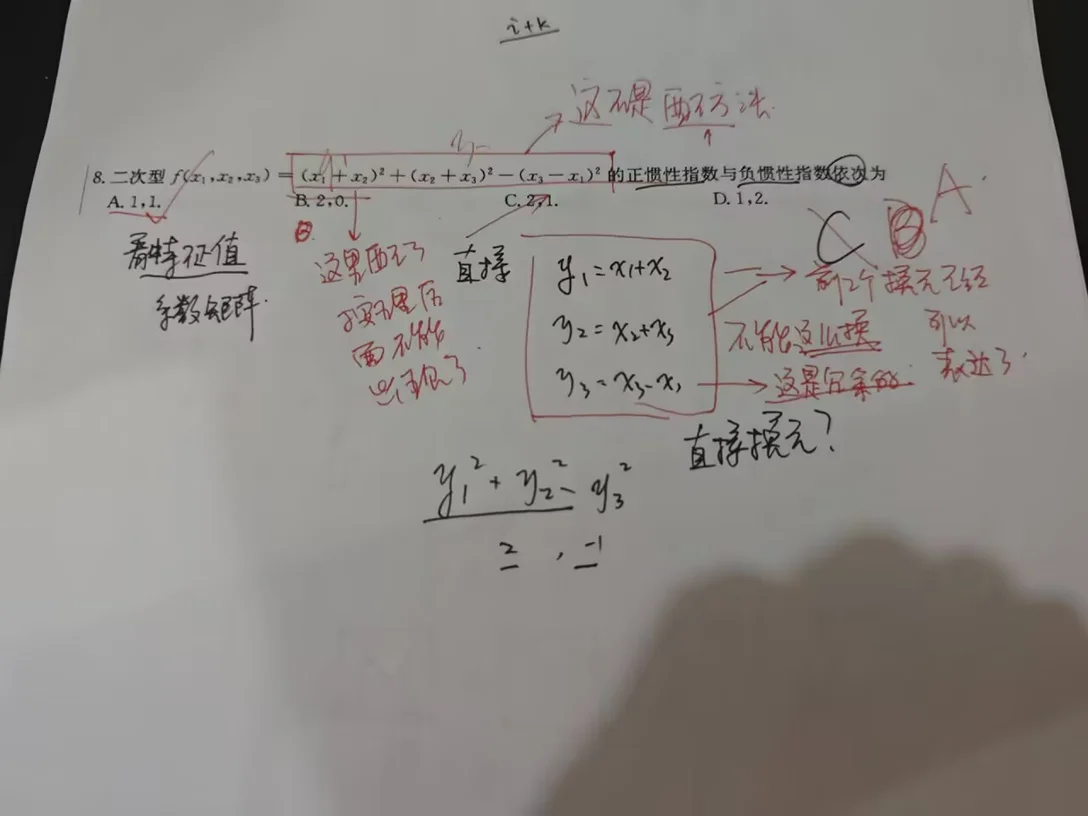 i+k
这不是配方法.
8. 二次型 f(x₁,x₂,x₃) = (x₁+x₂)²+(x₂+x₃)²-(x₃-x₁)² 的正惯性指数与负惯性指数依次为
A. 1,1. B. 2,0. C. 2,1. D. 1,2.
C B A
看特征值
系数矩阵.
这里配了
按道理后
面不能
出现x₁了
直接
y₁=x₁+x₂
y₂=x₂+x₃
y₃=x₃-x₁
前2个换元已经
可以
表达了.
不能这么换
这是冗余的.
直接换元?
y₁²+y₂²-y₃²
2 , -1